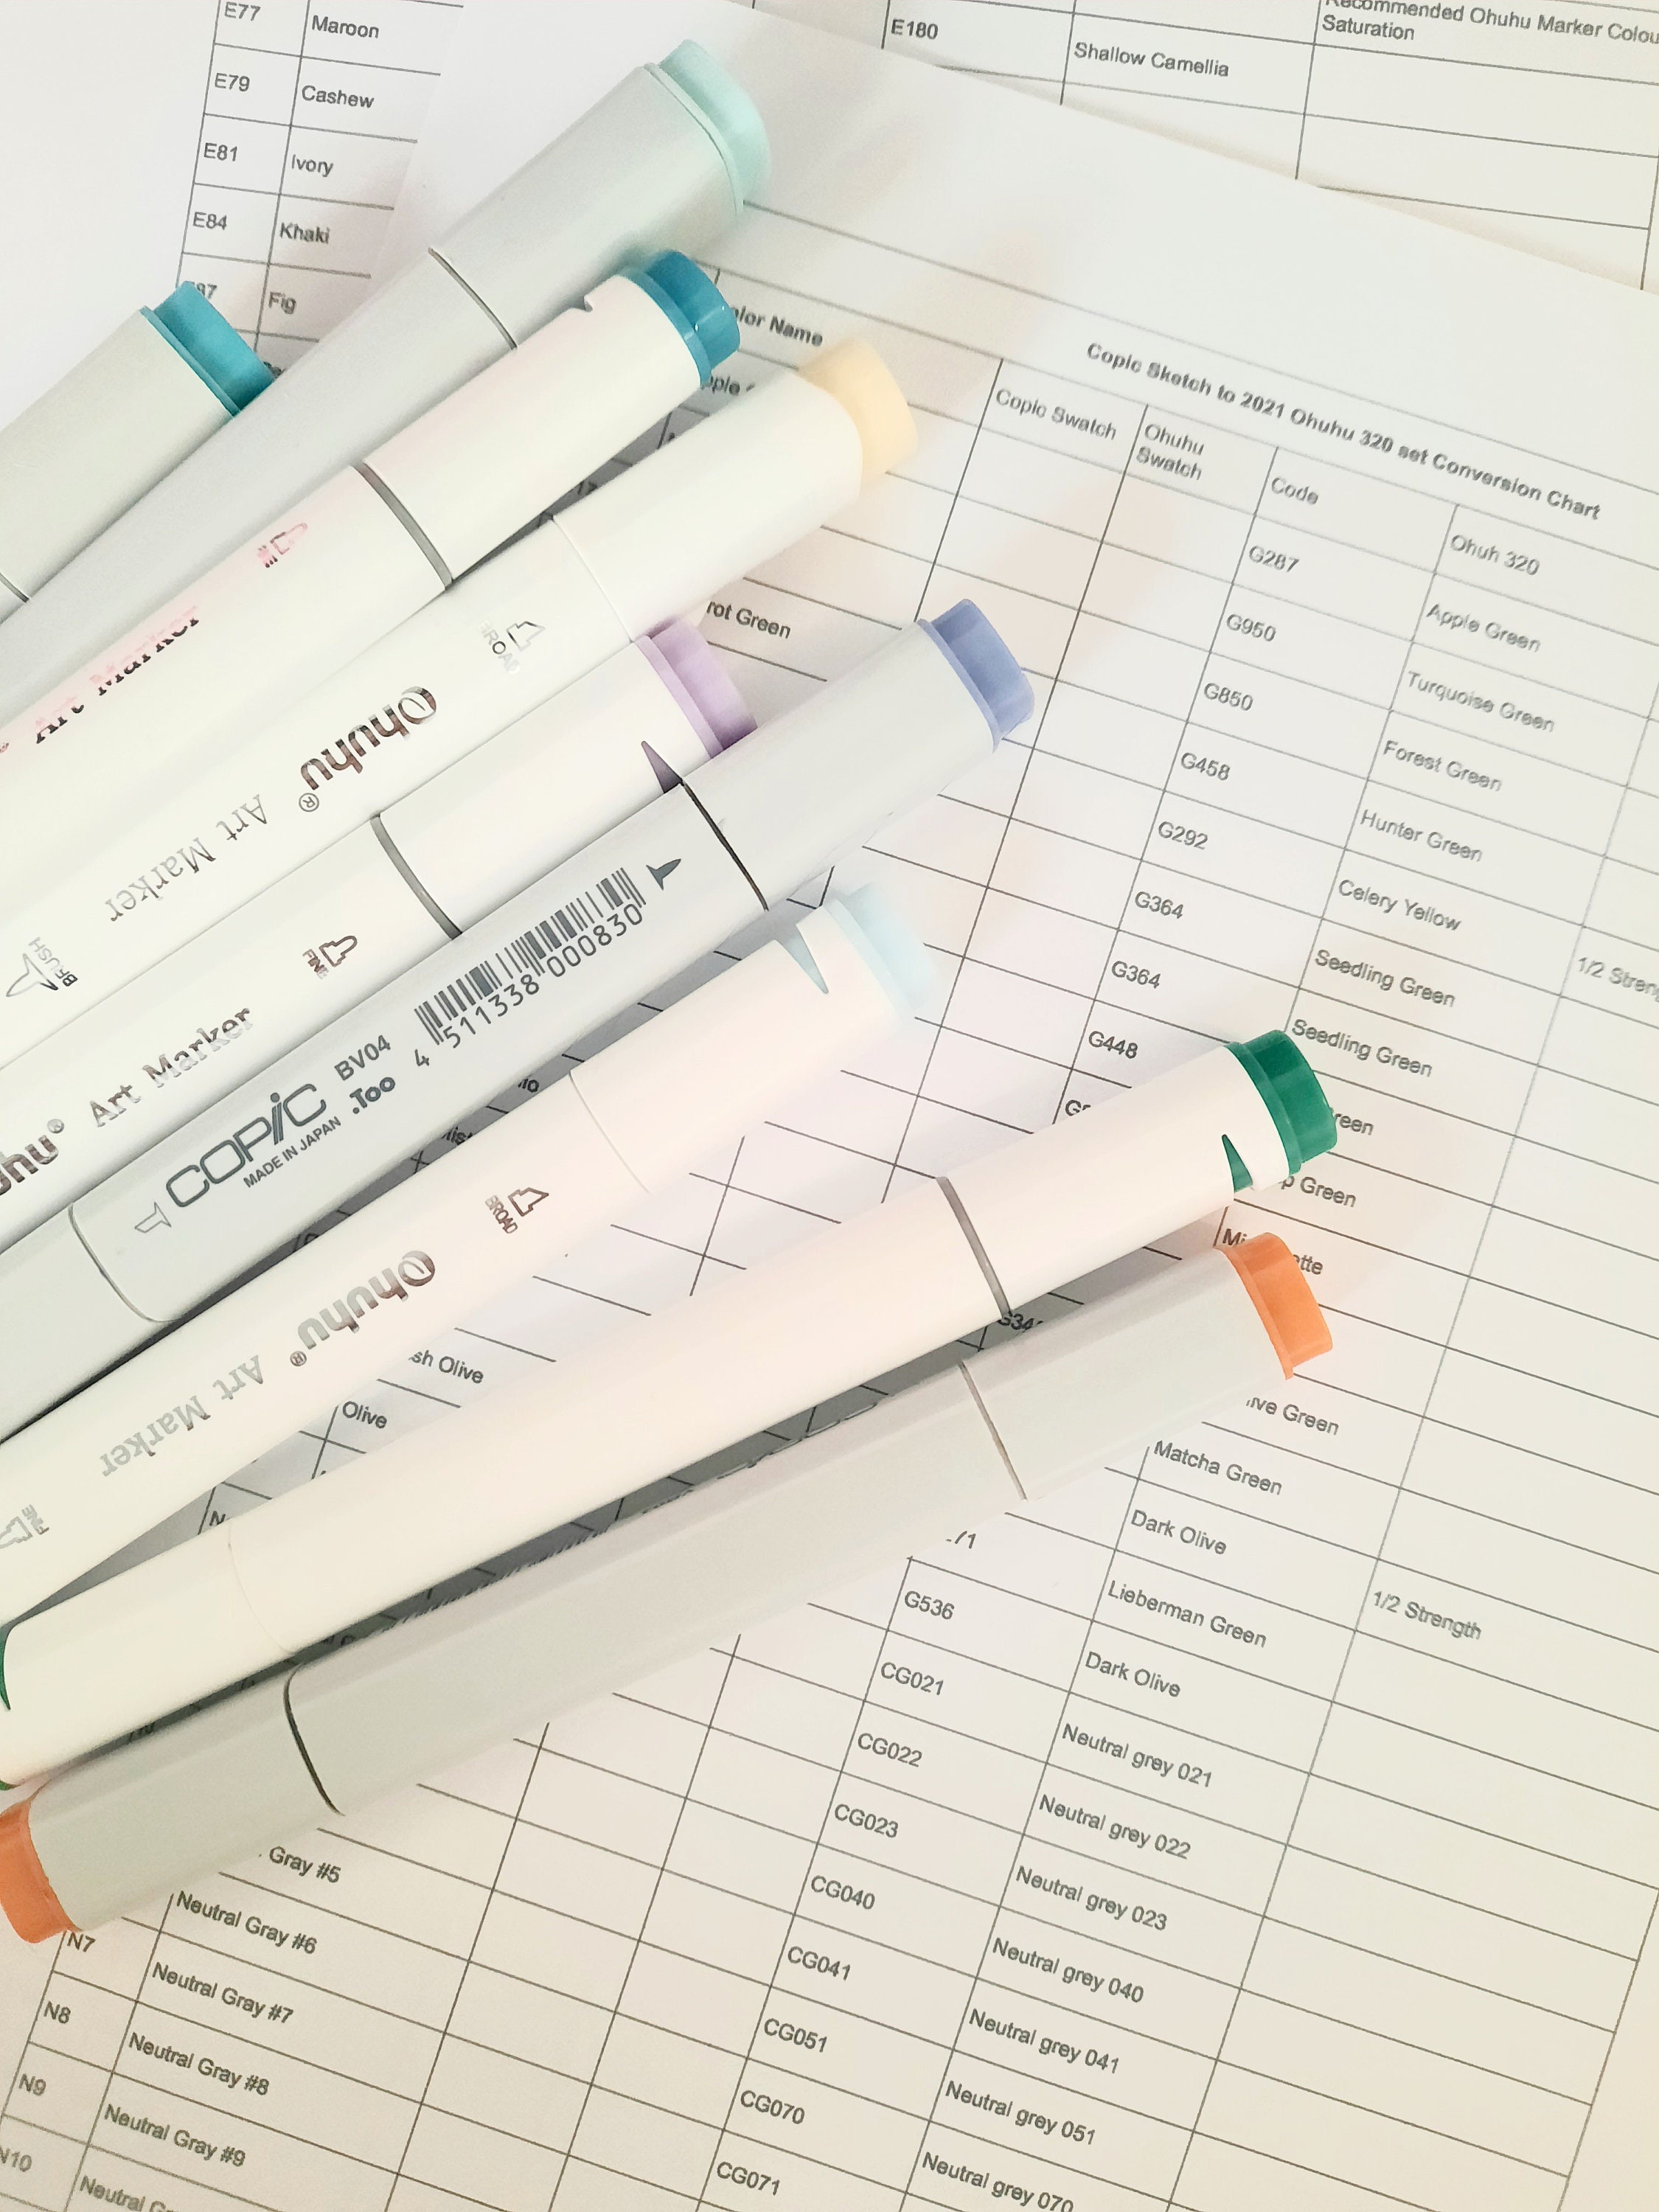 E77 Maroon
E79 Cashew
E81 Ivory
E84 Khaki
Fig
E180 Shallow Camellia
Recommended Ohuhu Marker Colou
Saturation
Copic Sketch to 2021 Ohuhu 320 set Conversion Chart
olor Name
Copic Swatch
Ohuhu
Swatch
Code
Ohuh 320
G287 Apple Green
G950 Turquoise Green
G850 Forest Green
G458 Hunter Green
G292 Celery Yellow
G364 Seedling Green 1/2 Streng
G364 Seedling Green
G448
rot Green
reen
p Green
sh Olive
Olive
ive Green
Matcha Green
Dark Olive
Lieberman Green 1/2 Strength
G536 Dark Olive
CG021 Neutral grey 021
CG022 Neutral grey 022
CG023 Neutral grey 023
Gray #5 CG040 Neutral grey 040
Neutral Gray #6 CG041 Neutral grey 041
N7 Neutral Gray #7 CG051 Neutral grey 051
N8 Neutral Gray #8 CG070 Neutral grey 070
N9 Neutral Gray #9 CG071
N10 Neutral G
Art Marker
BROAD
Ohuhu® Art Marker
BRUSH
FINE
uhu® Art Marker
COPIC BV04
MADE IN JAPAN .Too
4 511338 000830
BROAD
Ohuhu® Art Marker